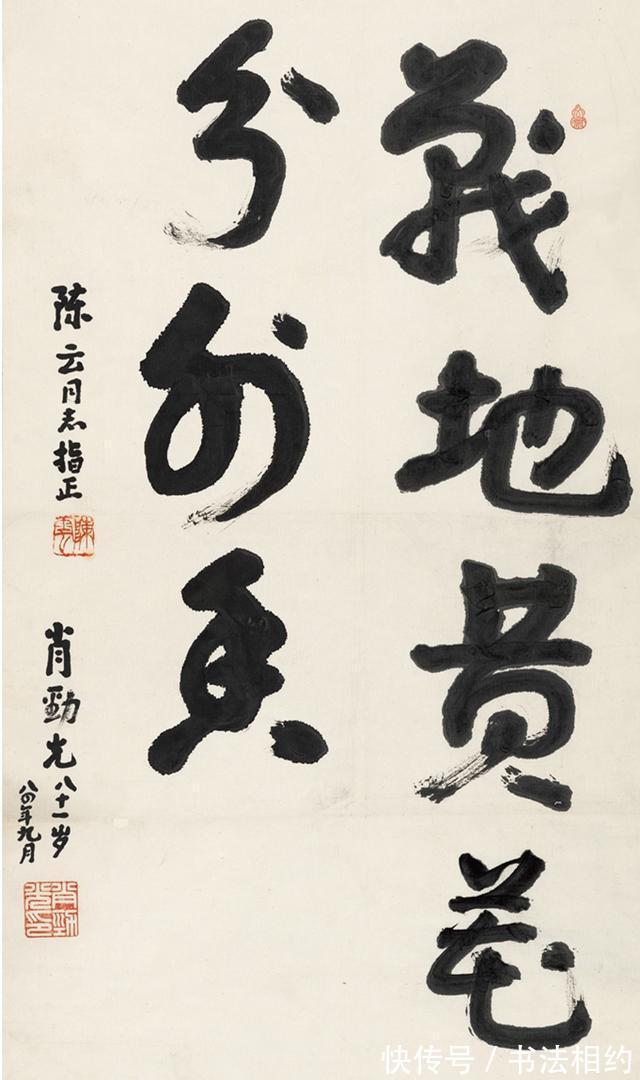 戰地黄花
分外香
陈云同志指正
肖勁光八十一岁
八四年九月
肖勁光印
快传号 / 书法相约